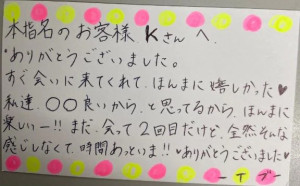 本指名のお客様 Kさんへ
ありがとうございました。
すぐ会いに来てくれて、ほんまに嬉しかった♥
私達、○○良いから、と思ってるから、ほんまに
楽しいー!! まだ、会って2回目だけど、全然そんな
感じしなくて、時間あっといま!! ♥ありがとうございました♥